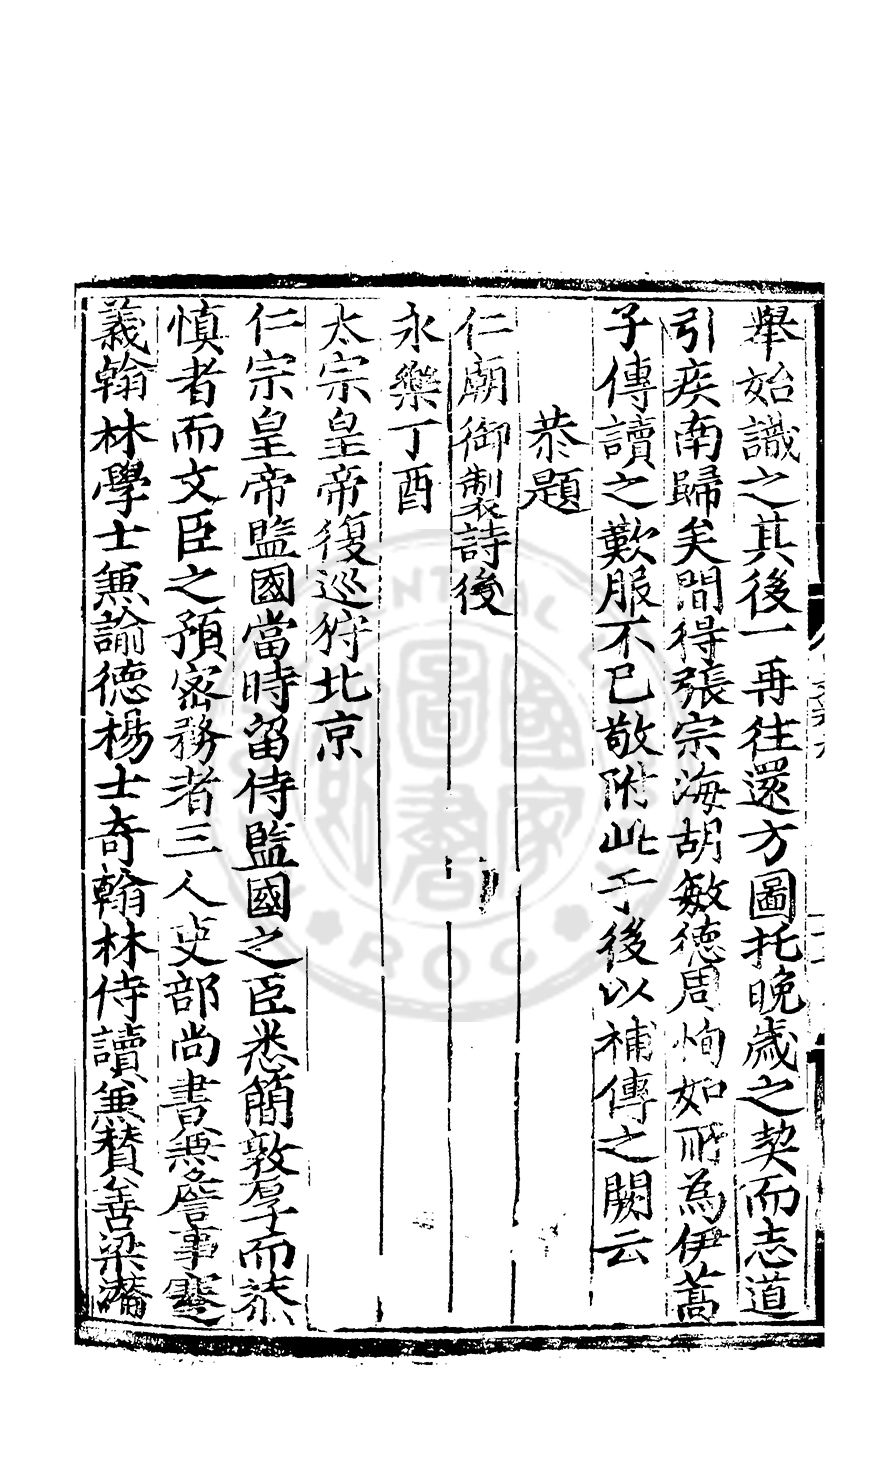 舉始識之其後一再往還方圖托晚歲之契而志道
引疾南歸矣間得張宗海胡敏德周恂如所為伊蒿
子傳讀之歎服不已敬附此于後以補傳之闕云
恭題
仁廟御製詩後
永樂丁酉
太宗皇帝復巡狩北京
仁宗皇帝監國當時留侍監國之臣悉簡敦厚而恭
慎者而文臣之預密務者三人吏部尚書兼詹事蹇
義翰林學士兼諭德楊士奇翰林侍讀兼贊善梁潛